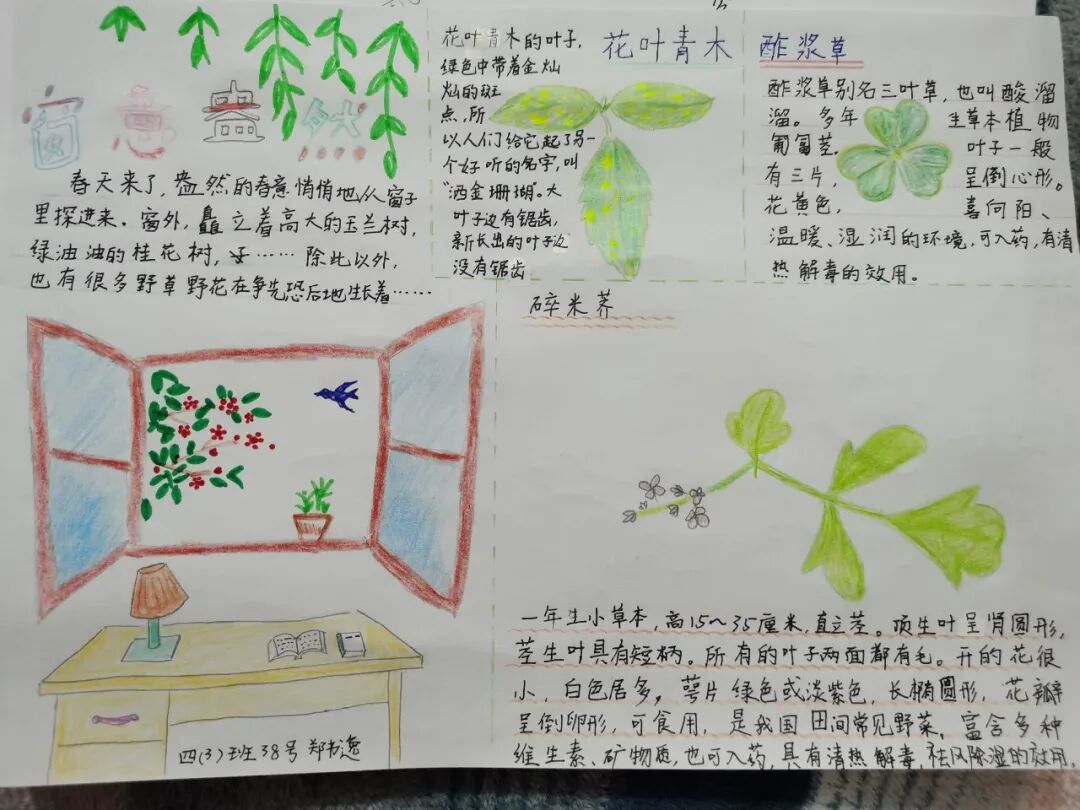 窗意盎然
春天来了，盎然的春意悄悄地从窗子
里探进来。窗外，矗立着高大的玉兰树，
绿油油的桂花树，……除此以外，
也有很多野草野花在争先恐后地生长着……
四(3)班38号 郑书逸
花叶青木
花叶青木的叶子，
绿色中带着金灿
灿的斑
点，所
以人们给它起了另一
个好听的名字，叫
“洒金珊瑚”。大
叶子边有锯齿，
新长出的叶子边
没有锯齿
酢浆草
酢浆草别名三叶草，也叫酸溜
溜。多年生草本植物
匍匐茎，叶子一般
有三片，呈倒心形。
花黄色，喜向阳、
温暖、湿润的环境，可入药，有清
热解毒的效用。
碎米荠
一年生小草本，高15～35厘米，直立茎。顶生叶呈肾圆形，
茎生叶具有短柄。所有的叶子两面都有毛。开的花很
小，白色居多，萼片绿色或淡紫色，长椭圆形，花瓣
呈倒卵形，可食用，是我国田间常见野菜。富含多种
维生素、矿物质，也可入药，具有清热解毒，祛风除湿的效用。